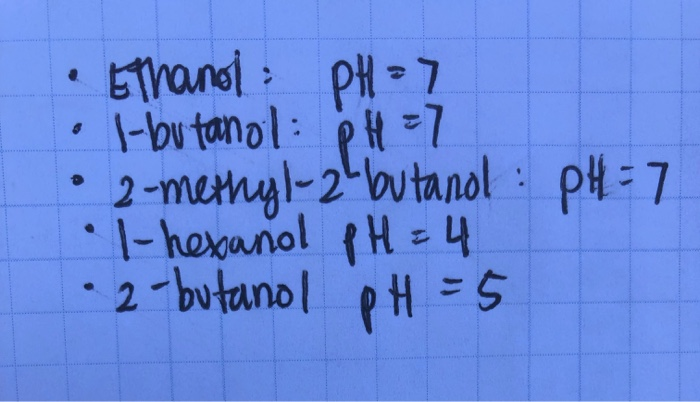 • Ethanol: pH = 7
• 1-butanol: pH = 7
• 2-methyl-2-butanol: pH = 7
• 1-hexanol pH = 4
• 2-butanol pH = 5